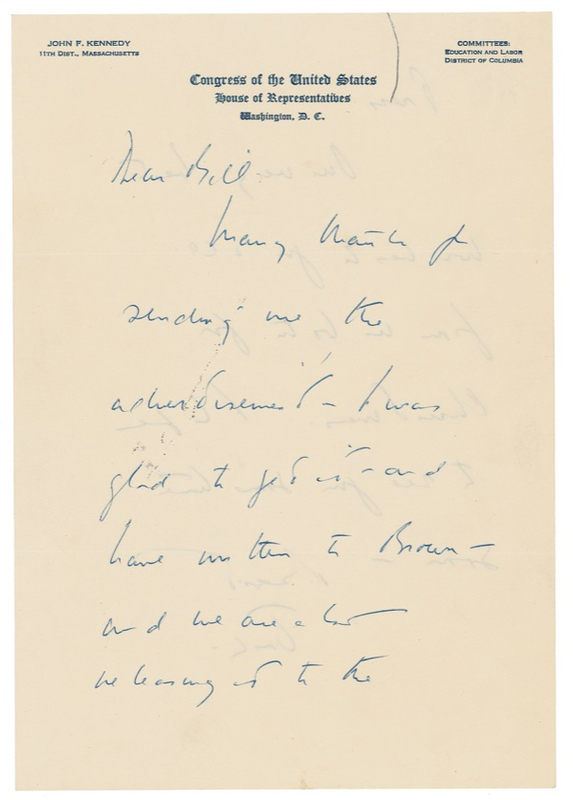 JOHN F. KENNEDY
11TH DIST., MASSACHUSETTS
COMMITTEES:
EDUCATION AND LABOR
DISTRICT OF COLUMBIA
Congress of the United States
House of Representatives
Washington, D. C.
Dear Bill
Many thanks for
sending me the
advertisement – I was
glad to get it – and
have written to Brown –
and we are also
releasing it to the